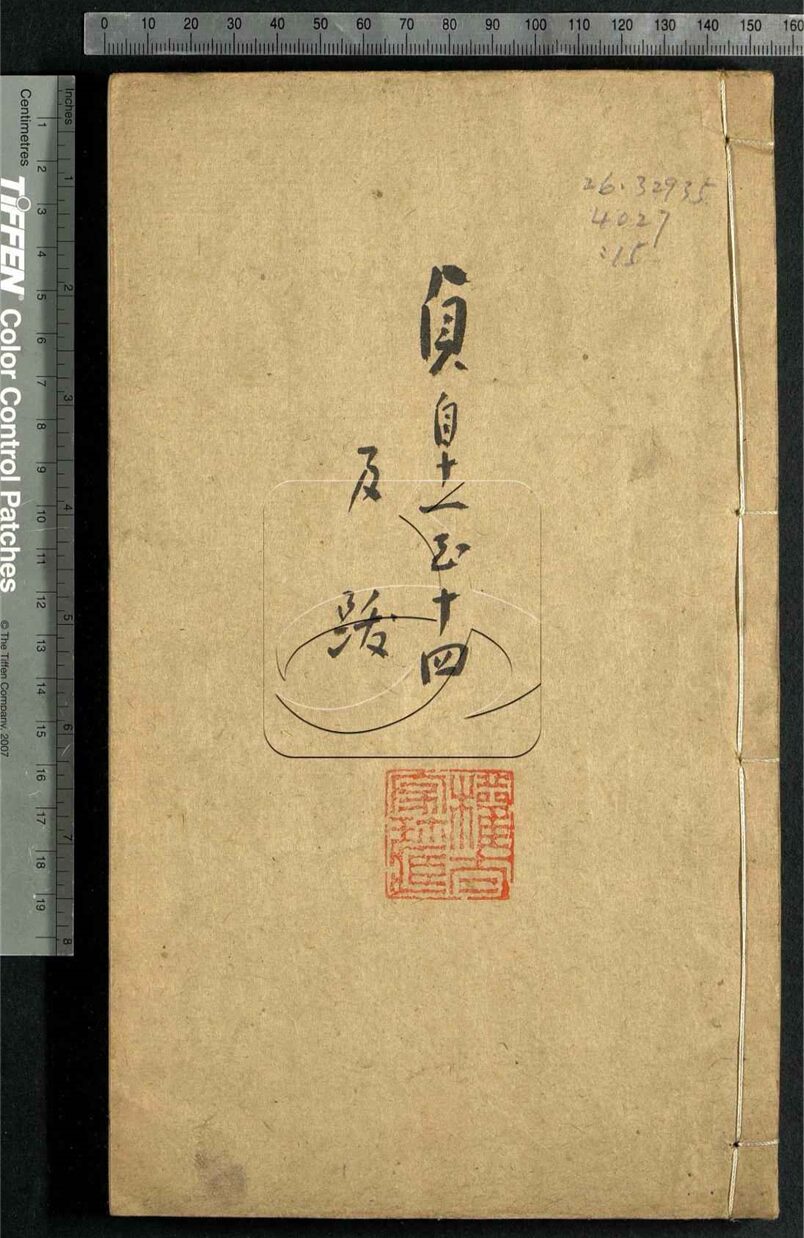 0 10 20 30 40 50 60 70 80 90 100 110 120 130 140 150 160
Inches
1 2 3 4 5 6 7 8
Centimetres
1 2 3 4 5 6 7 8 9 10 11 12 13 14 15 16 17 18 19
TIFFEN® Color Control Patches
© The Tiffen Company, 2007
26.32935
4027
:15
貞 自十一至十四
及 跋